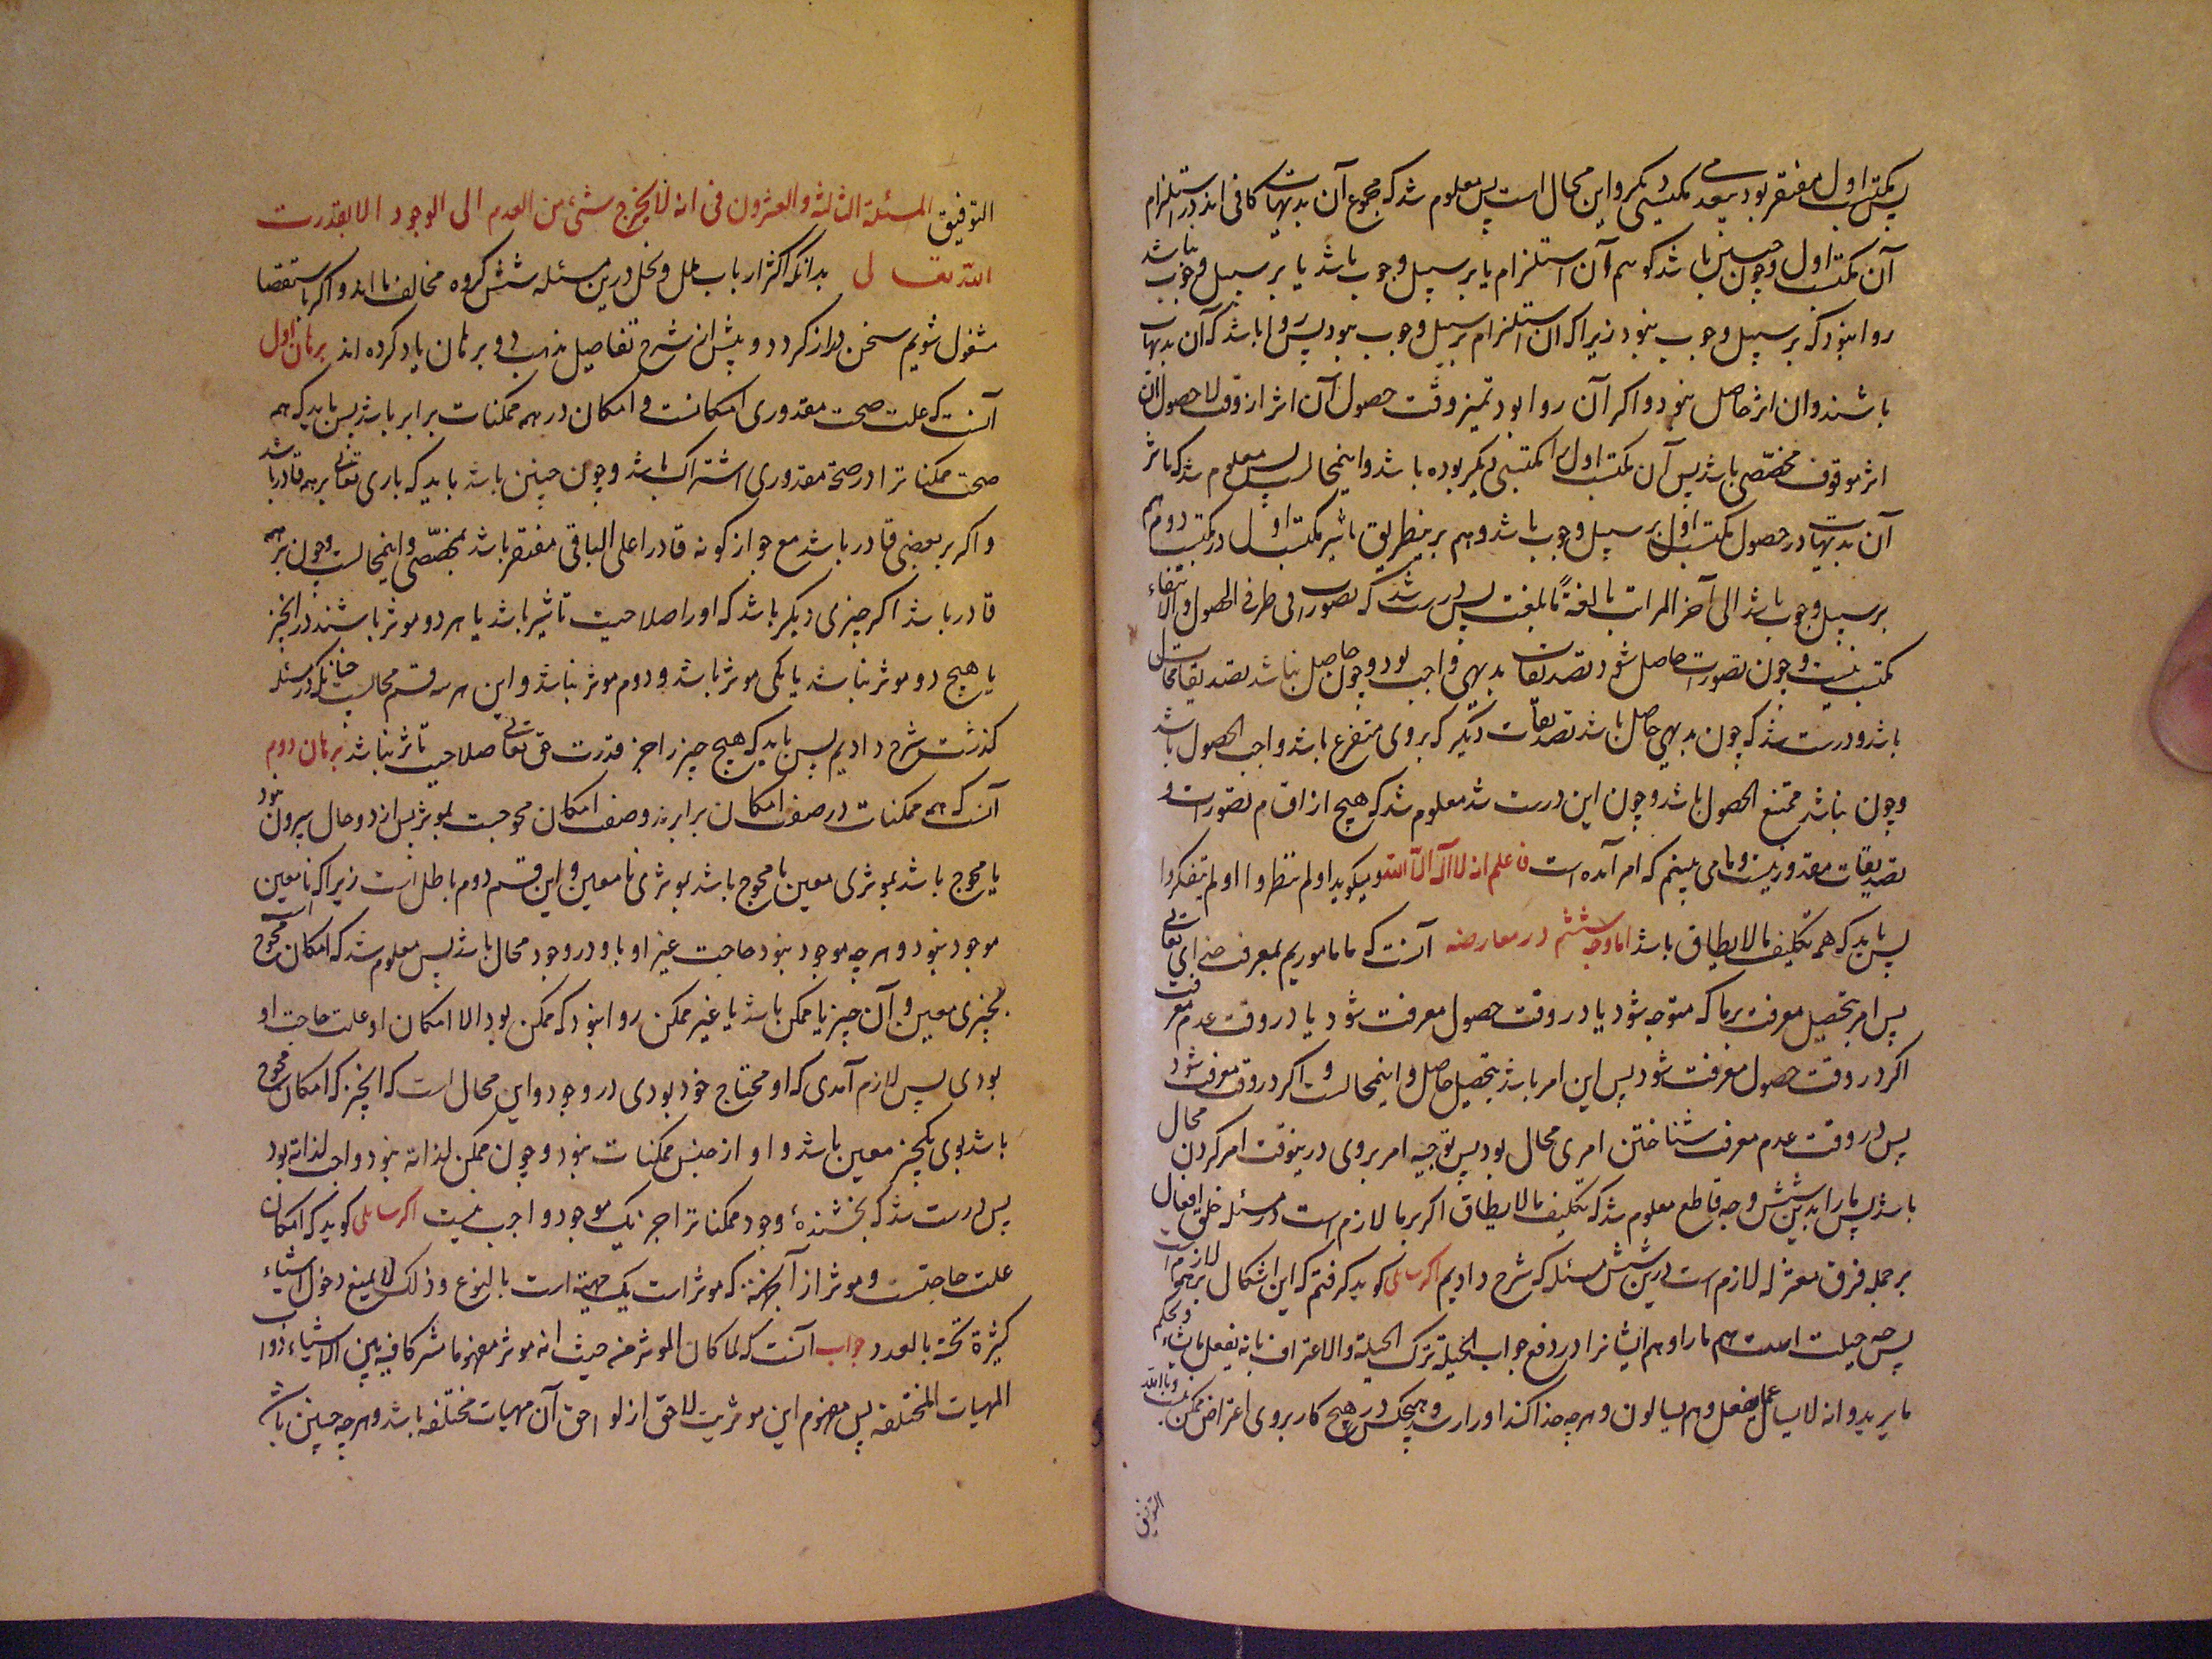 پس مکتسب اول مفتقر بود بعدمی مکتسبی دیگر و این محال است پس معلوم شد که مجموع آن بدیهیات کافی اند در استلزام
آن مکتسب اول و چون چنین باشد گوهم آن استلزام یا بر سبیل وجوب باشد یا بر سبیل وجوب نباشد
روا نبود که بر سبیل وجوب نبود زیرا که اگر آن استلزام بر سبیل وجوب نبود پس روا باشد که آن بدیهیات
باشند و ان اثر حاصل نبود و اگر آن روا بود تمیز وقت حصول آن اثر از وقت لا حصول آن
اثر موقوف مخصّصی باشد پس آن مکتسب اول را مکتسبی دیگر بوده باشد و اینمحالست پس معلوم شد که تاثیر
آن بدیهیات در حصول مکتسب اول بر سبیل وجوب باشد و هم برینطریق تاثیر مکتسب اول در مکتسب دوم هم
بر سبیل وجوب باشد الی آخر المراتب بالغةً ما بلغت پس درست شد که تصورات فی طرفی الحصول و الانتفاء
مکتسب نیست و چون تصورات حاصل شود تصدیقات بدیهی واجب بود و چون حاصل نباشد تصدیقات محال
باشد و درست شد که چون بدیهی حاصل باشد تصدیقات دیگر که بر وی متفرع باشد واجب الحصول باشد
و چون نباشد ممتنع الحصول باشد و چون این درست شد معلوم شد که هیچ از اقسام تصورات و
تصدیقات مقدور نیست و ما می بینیم که امر آمده است فاعلم انه لا اله الّا الله و میگوید اولم ینظروا اولم یتفکروا
پس باید که همه تکلیف ما لا یطاق باشد اما وجه ششم در معارضه آنست که ما ماموریم بمعرفت خدای تعالی
پس امر بتحصیل معرفت بر ما که متوجه شود یا در وقت حصول معرفت شود یا در وقت عدم معرفت
اگر در وقت حصول معرفت شود پس این امر باشد بتحصیل حاصل و اینمحالست و اگر در وقت معرفت شود
پس در وقت عدم معرفت شناختن امری محال بود پس توجیه امر بر وی درینوقت امر کردن محال
باشد پس ما را بدین شش وجه قاطع معلوم شد که تکلیف ما لا یطاق اگر بر ما لازم است در مسئله خلق افعال
بر جمله فرق معتزله لازم است درین شش مسئله که شرح دادیم اگر سائلی گوید گرفتم که این اشکال بر همه لازم است
پس چه حیلت است هم ما را و هم ایشانرا در دفع جواب الحیلة ترک الحیلة و الاعتراف بانه یفعل ما یشاء و یحکم
ما یرید و انه لا یسأل عما یفعل و هم یسالون و هرچه خدا کند او را رسد و هیچکس در هیچ کار بر وی اعتراض ممکن نیست و بالله
التوفیق
التوفیق المسئلة الثالثة و العشرون فی انه لا یخرج شیء من العدم الی الوجود الا بقدرت
الله تعالی بدانکه اکثر ارباب ملل و نحل درین مسئله شش گروه مخالف ما اند و اگر باستقصا
مشغول شویم سخن دراز گردد و پیش از شرح تفاصیل مذهب دو برهان یاد کرده اند برهان اول
آنست که علت صحت مقدوری امکانست و امکان در همه ممکنات برابر باشد پس باید که همه
صحت ممکناترا در صحة مقدوری اشتراک باشد و چون چنین باشد باید که باری تعالی بر همه قادر باشد
و اگر بر بعضی قادر باشد مع جواز کونه قادرا علی الباقی مفتقر باشد بمخصّصی و اینمحالست و چون بر همه
قادر باشد اگر چیزی دیگر باشد که او را صلاحیت تاثیر باشد یا هر دو موثر باشند در آن چیز
یا هیچ دو موثر نباشد یا یکی موثر باشد و دوم موثر نباشد و این هر سه قسم محالست چنانکه در مسئله
گذشته شرح دادیم پس باید که هیچ چیز را جز قدرت حق تعالی صلاحیت تاثیر نباشد برهان دوم
آنست که همه ممکنات در صفت امکان برابرند و صفت امکان محوجست بموثر پس از دو حال بیرون نبود
یا محوج باشد بموثری معین یا محوج باشد بموثری نامعین و این قسم دوم باطل است زیرا که نامعین
موجود نبود و هرچه موجود نبود حاجت غیر او باو در وجود محال باشد پس معلوم شد که امکان محوج است
بچیزی معین و آن چیز یا ممکن باشد یا غیر ممکن روا نبود که ممکن بود الا امکان او علت حاجت او
بودی پس لازم آمدی که او محتاج خود بودی در وجود و این محال است که آنچیز که امکان محوج
باشد بوی یکچیز معین باشد و او از جنس ممکنات نبود و چون ممکن لذاته نبود واجب لذاته بود
پس درست شد که بخشندهٔ وجود ممکناترا جز یک موجود واجب نیست اگر سائلی گوید که امکان
علت حاجتست و موثر از آنجهة که موثر است یک جهة است بالنوع و ذلک لا یمنع دخول اشیاء
کثیرة تحته بالعدد جواب آنست که لما کان الموثر من حیث انه موثر مفهوما مشترکا فیه بین الاشیاء ذوات
المهیات المختلفه پس مفهوم این موثریت لاحق از لواحق آن مهیات مختلفه باشد و هرچه چنین باشد